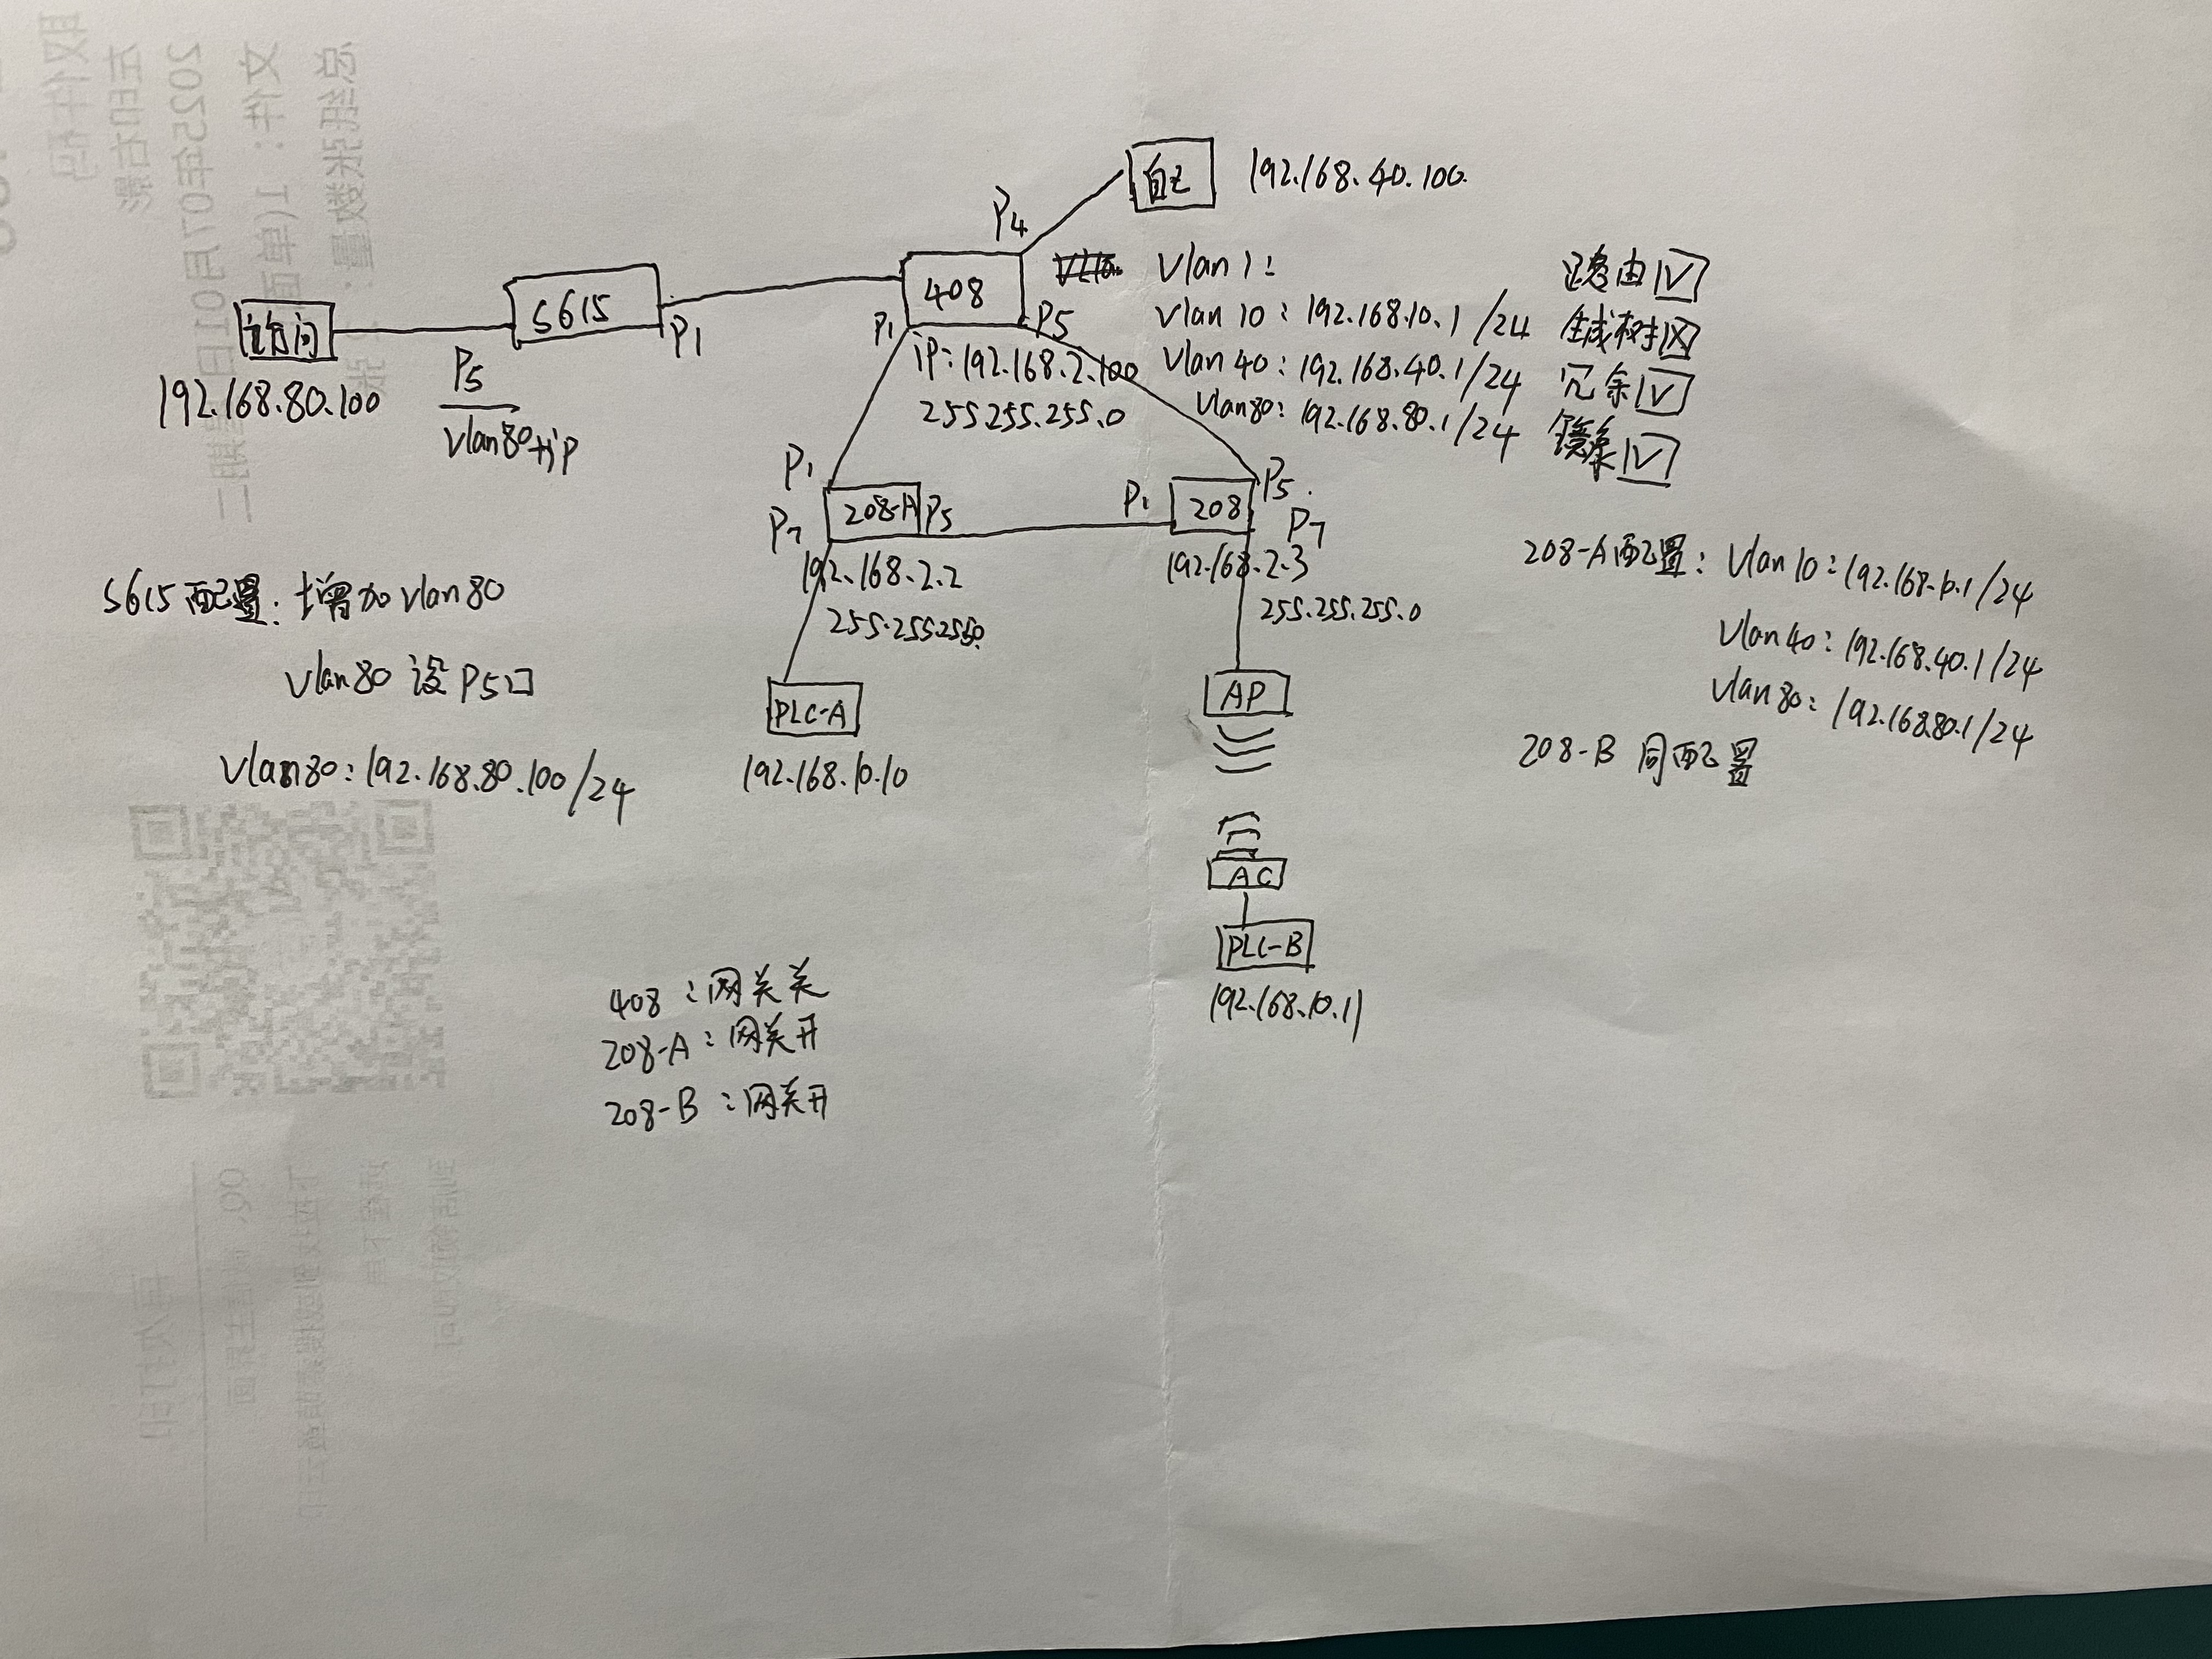 自己 192.168.40.100.
P4
408
P1
P5
ip:192.168.2.100
255.255.255.0
Vlan 1:
Vlan 10: 192.168.10.1/24
Vlan 40: 192.168.40.1/24
Vlan80: 192.168.80.1/24
路由 V
生成树 X
冗余 V
镜象 V
访问
192.168.80.100
S615
P1
P5
Vlan80+ip
P1
208-A
P5
P7
192.168.2.2
255.255.255.0
P1
208
P5.
P7
192.168.2.3
255.255.255.0
S615配置: 增加Vlan80
Vlan80 设P5口
Vlan80:192.168.80.100/24
PLC-A
192.168.10.10
AP
AC
PLC-B
192.168.10.11
208-A配置: Vlan 10:192.168.10.1/24
Vlan40: 192.168.40.1/24
Vlan80: 192.168.80.1/24
208-B 同配置
408 :网关关
208-A:网关开
208-B :网关开